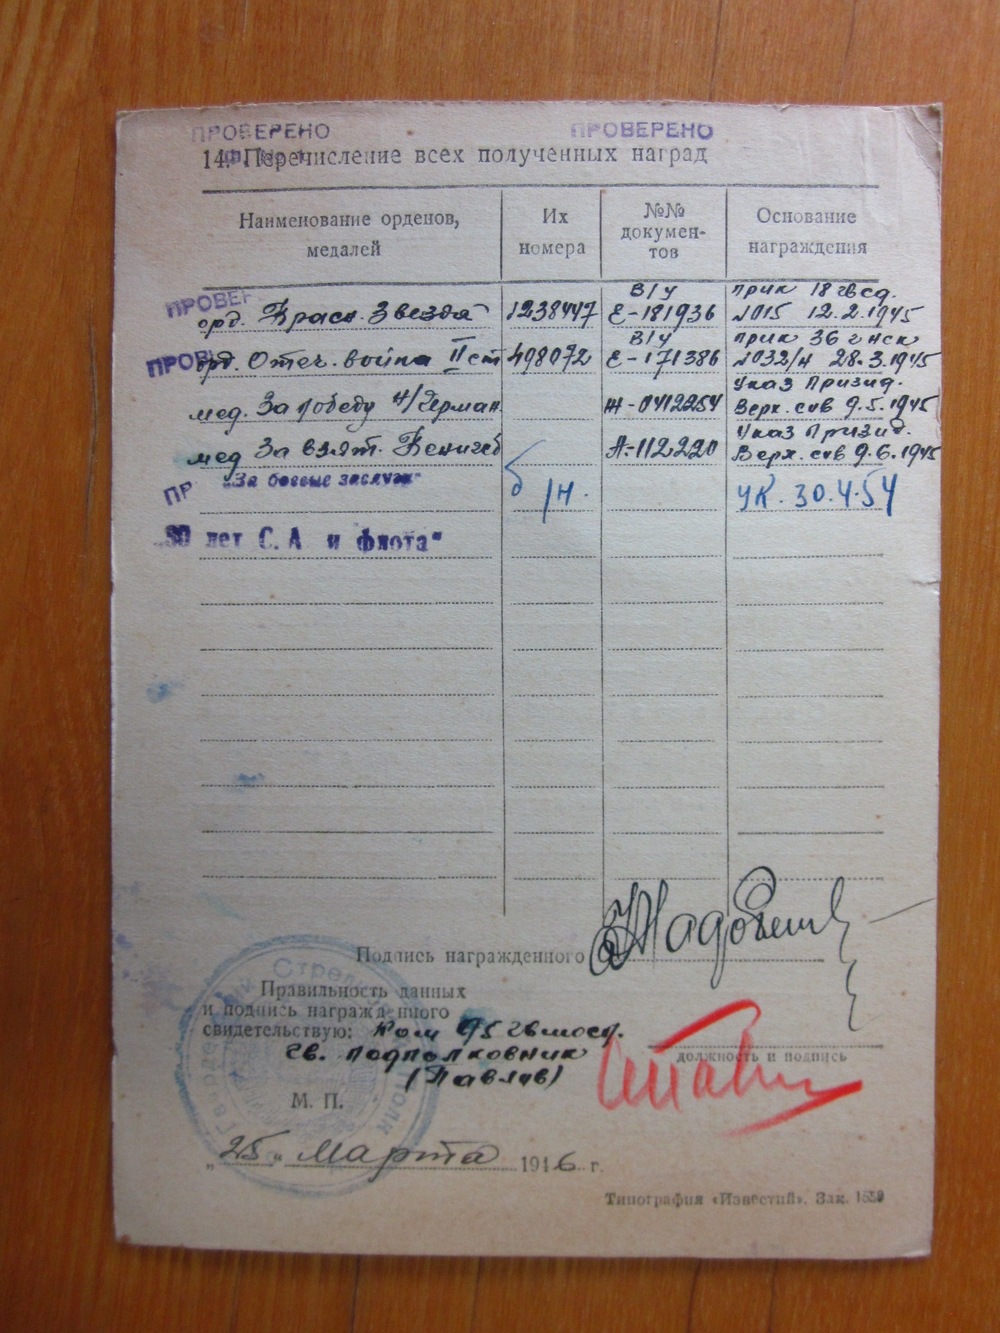 ПРОВЕРЕНО ПРОВЕРЕНО
14. Перечисление всех полученных наград
Наименование орденов, медалей Их номера №№ документов Основание награждения
ПРОВЕР
В/у прик 18 гвсд.
орд. Красн. Звезда 1238447 Е-181936 №015 12.2.1945
В/у прик 36 гнск
ПРОВ орд. Отеч. война II ст 498072 Е-171386 №032/н 28.3.1945
Указ Призид.
мед. За победу н/Герман. Ж-0412254 Верх. сов 9.5.1945
Указ Призид.
мед За взят. Кенигсб А-112220 Верх. сов 9.6.1945
ПР „За боевые заслуги“ б/н. УК. 30.4.54
„30 лет С.А и флота“
Подпись награжденного
Правильность данных
и подпись награжденного
свидетельствую: Ком 95 гвмосд.
должность и подпись
гв. подполковник
(Павлов)
М. П.
„25„ марта 1946 г.
Типография «Известий». Зак. 1559